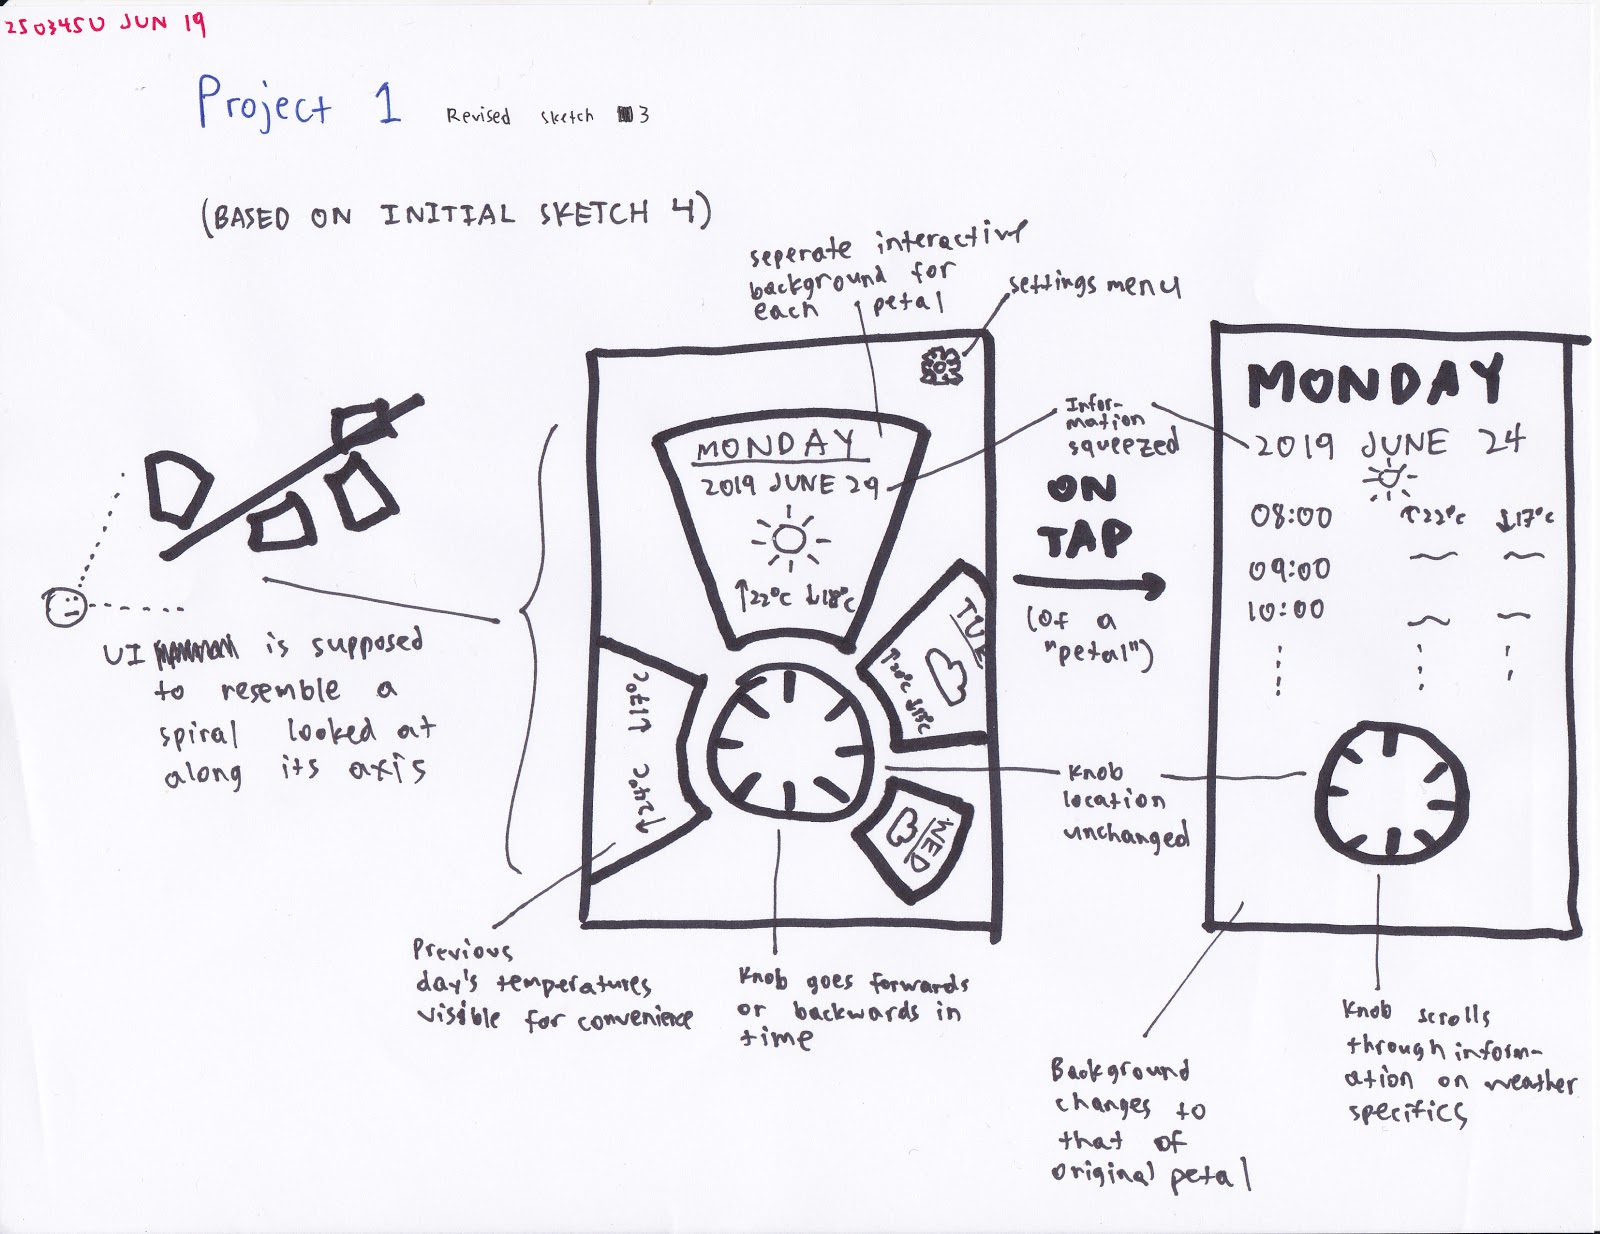 250345U JUN 19
Project 1 Revised sketch 3
(BASED ON INITIAL SKETCH 4)
seperate interactive
background for
each petal
settings menu
UI is supposed
to resemble a
spiral looked at
along its axis
MONDAY
2019 JUNE 29
↑22°C ↓18°C
TUE
WED
↓17°C
↑24°C
Infor-
mation
squeezed
ON
TAP
(of a
"petal")
Knob
location
unchanged
MONDAY
2019 JUNE 24
08:00 ↑22°C ↓17°C
09:00
10:00
Previous
day's temperatures
visible for convenience
Knob goes forwards
or backwards in
time
Background
changes to
that of
original petal
Knob scrolls
through inform-
ation on weather
specifics